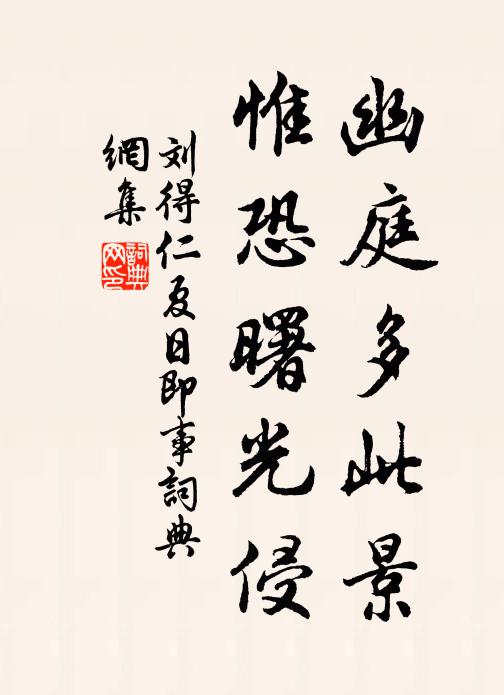 幽庭多此景
惟恐曙光侵
刘得仁夏日即事詞典
網集
詞典網印